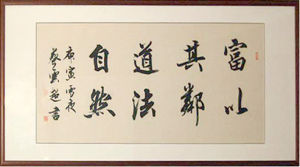 富以
其鄰
道法
自然
庚寅雪夜